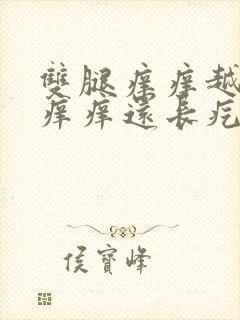 雙腿痒痒越
痒痒還長疙
侯寶峰